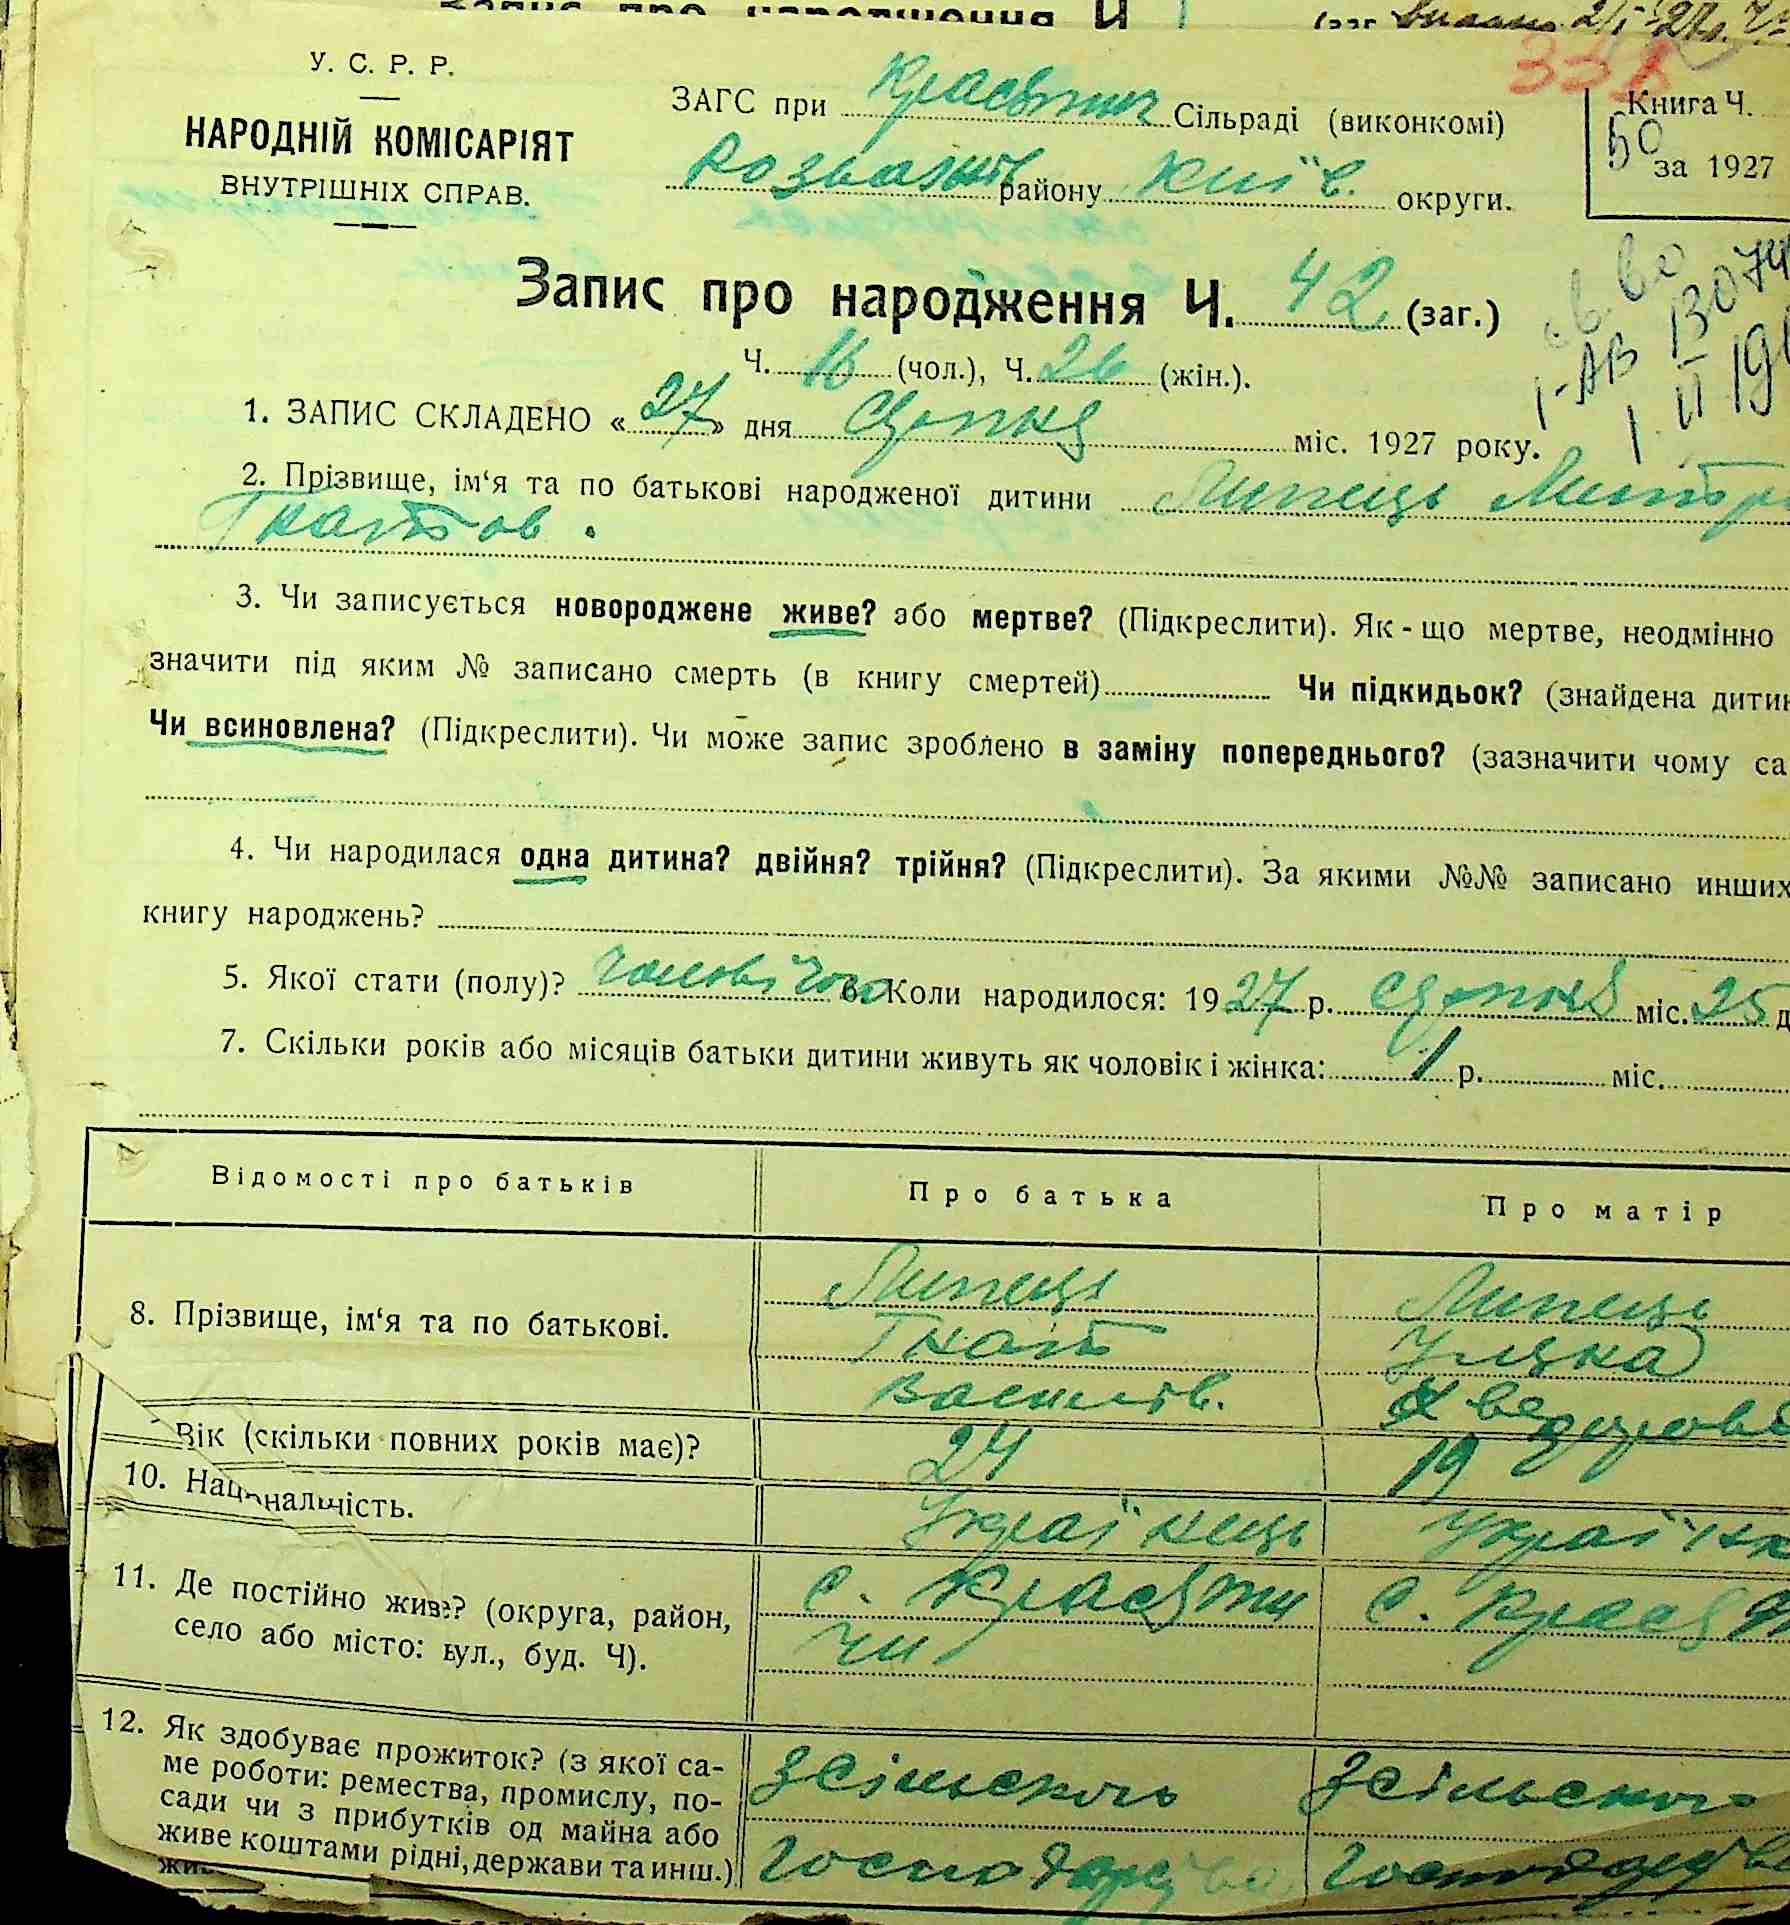 У. С. Р. Р.
НАРОДНІЙ КОМІСАРІЯТ
ВНУТРІШНІХ СПРАВ.
ЗАГС при Красятич Сільраді (виконкомі)
Розважів району Київ. округи.
Книга Ч.
50 за 1927
Запис про народження Ч. 42 (заг.)
Ч. 16 (чол.), Ч. 26 (жін.).
1. ЗАПИС СКЛАДЕНО «27» дня Серпня міс. 1927 року.
2. Прізвище, ім‘я та по батькові народженої дитини Липець Митр
Гнатов.
3. Чи записується новороджене живе? або мертве? (Підкреслити). Як-що мертве, неодмінно
значити під яким № записано смерть (в книгу смертей) Чи підкидьок? (знайдена дитин
Чи всиновлена? (Підкреслити). Чи може запис зроблено в заміну попереднього? (зазначити чому са
4. Чи народилася одна дитина? двійня? трійня? (Підкреслити). За якими №№ записано инших
книгу народжень?
5. Якої стати (полу)? чоловічого 6. Коли народилося: 1927 р. Серпня міс. 25 д
7. Скільки років або місяців батьки дитини живуть як чоловік і жінка: 1 р. міс.
Відомості про батьків Про батька Про матір
8. Прізвище, ім‘я та по батькові.
Липець Липець
Гнат Уляна
Василів. Хведоров
Вік (скільки повних років має)? 24 19
10. Національність. Українець Українк
11. Де постійно живе? (округа, район,
село або місто: вул., буд. Ч).
с. Красяти с. Крася
чи
12. Як здобуває прожиток? (з якої са-
ме роботи: ремества, промислу, по-
сади чи з прибутків од майна або
живе коштами рідні, держави та инш.)
З сільського З сільського
господарства господарства